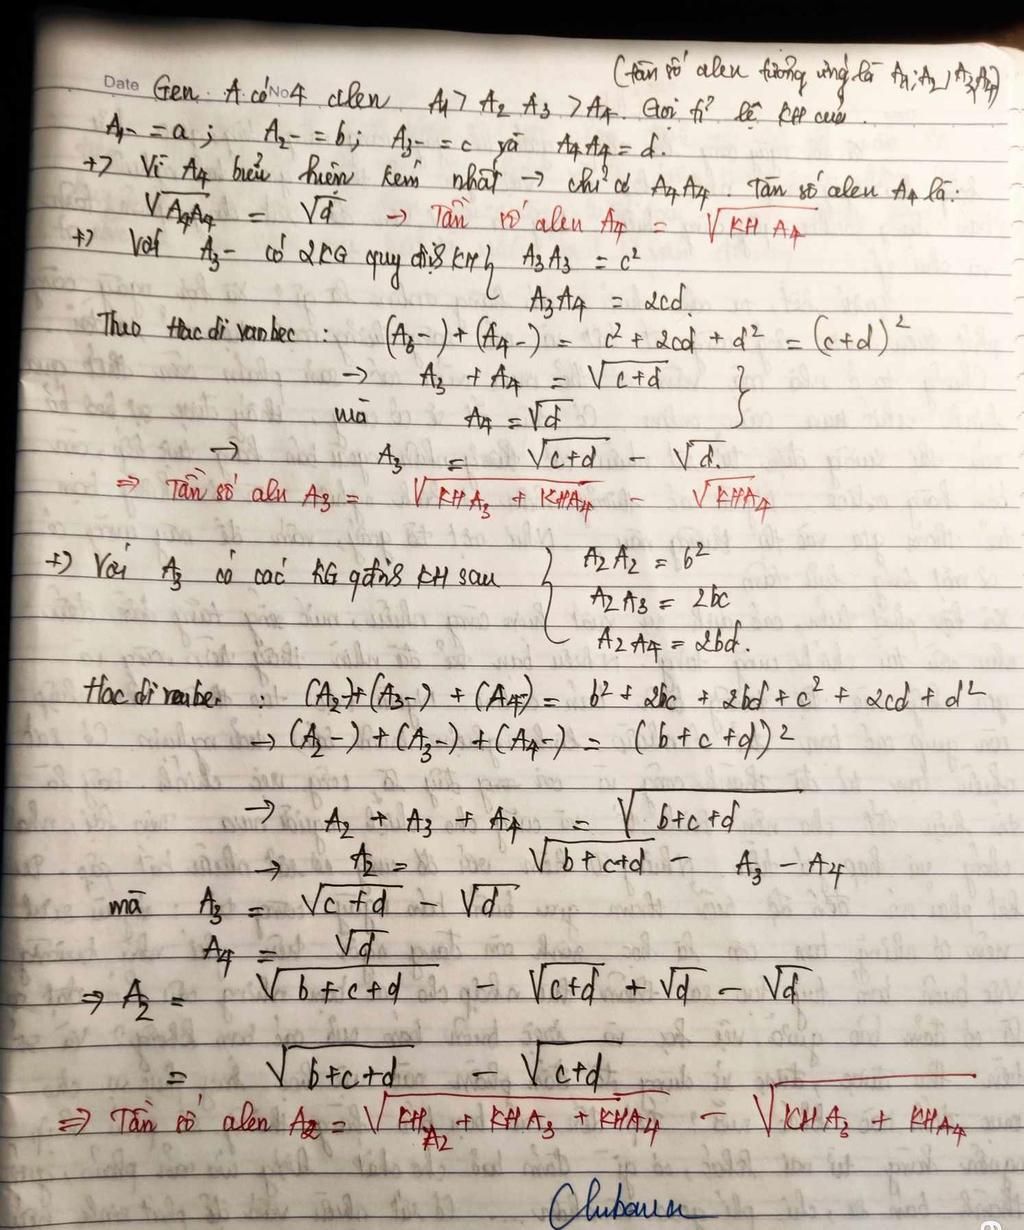 (tần số alen tương ứng là A1; A2; A3; A4)
Date No
Gen A có 4 alen A1 > A2 A3 > A4. Gọi tỉ lệ KH của
A1- = a; A2- = b; A3- = c và A4A4 = d.
+) Vì A4 biểu hiện kém nhất → chỉ có A4A4. Tần số alen A4 là:
√A4A4 = √d → Tần số alen A4 = √KH A4
+) Với A3- có 2KG quy định KH { A3A3 = c²
A3A4 = 2cd.
Theo Hac di vanbec : (A3-) + (A4-) = c² + 2cd + d² = (c+d)²
→ A3 + A4 = √c+d }
mà A4 = √d
→ A3 = √c+d - √d.
⇒ Tần số alen A3 = √KHA3 + KHA4 - √KHA4
+) Với A3 có các KG qđịnh KH sau { A2A2 = b²
A2A3 = 2bc
A2A4 = 2bd.
Hac di : (A2-)+(A3-) + (A4-) = b² + 2bc + 2bd + c² + 2cd + d²
→ (A2-) + (A3-) + (A4-) = (b+c+d)²
→ A2 + A3 + A4 = √b+c+d
→ A2 = √b+c+d - A3 - A4
mà A3 = √c+d - √d
A4 = √d
⇒ A2 = √b+c+d - √c+d + √d - √d
= √b+c+d - √c+d
⇒ Tần số alen A2 = √KHA2 + KHA3 + KHA4 - √KHA3 + KHA4